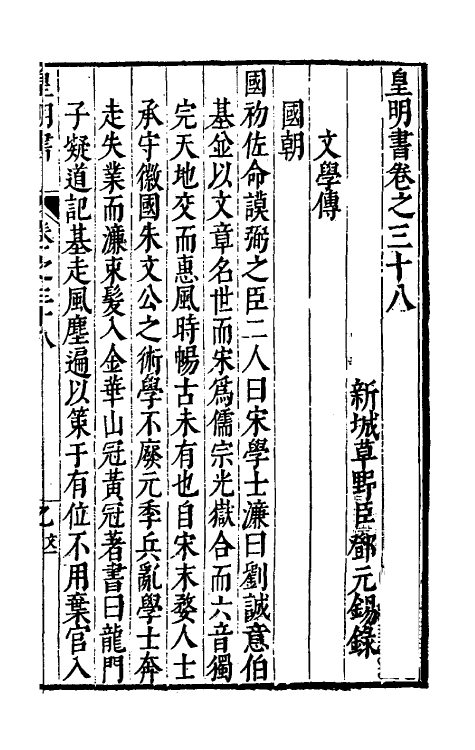 皇明書卷之三十八
新城草野臣鄧元錫錄
文學傳
國朝
國初佐命謨弼之臣二人曰宋學士濂曰劉誠意伯
基並以文章名世而宋爲儒宗光嶽合而六音獨
完天地交而惠風時暢古未有也自宋末婺人士
承守徽國朱文公之術學不廢元季兵亂學士奔
走失業而濂束髮入金華山冠黃冠著書曰龍門
子凝道記基走風塵遍以策于有位不用棄官入
皇明書
卷之三十八
文